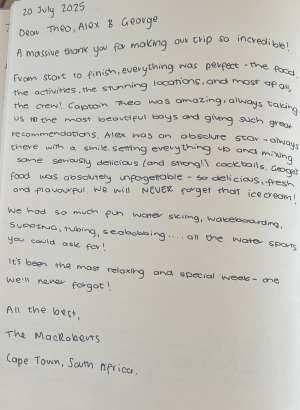 20 July 2025
Dear Theo, Alex & George
A massive thank you for making our trip so incredible!
From start to finish, everything was perfect - the food,
the activities, the stunning locations, and most of all,
the crew! Captain Theo was amazing, always taking
us to the most beautiful bays and giving such great
recommendations. Alex was an absolute star - always
there with a smile setting everything up and mixing
some seriously delicious (and strong!) cocktails. George's
food was absolutely unforgettable - so delicious, fresh
and flavourful. We will NEVER forget that ice cream!
We had so much fun water skiing, wakeboarding,
Supping, tubing, seabobbing.... all the water sports
you could ask for!
It's been the most relaxing and special week - one
we'll never forget!
All the best,
The MacRoberts
Cape Town, South Africa.